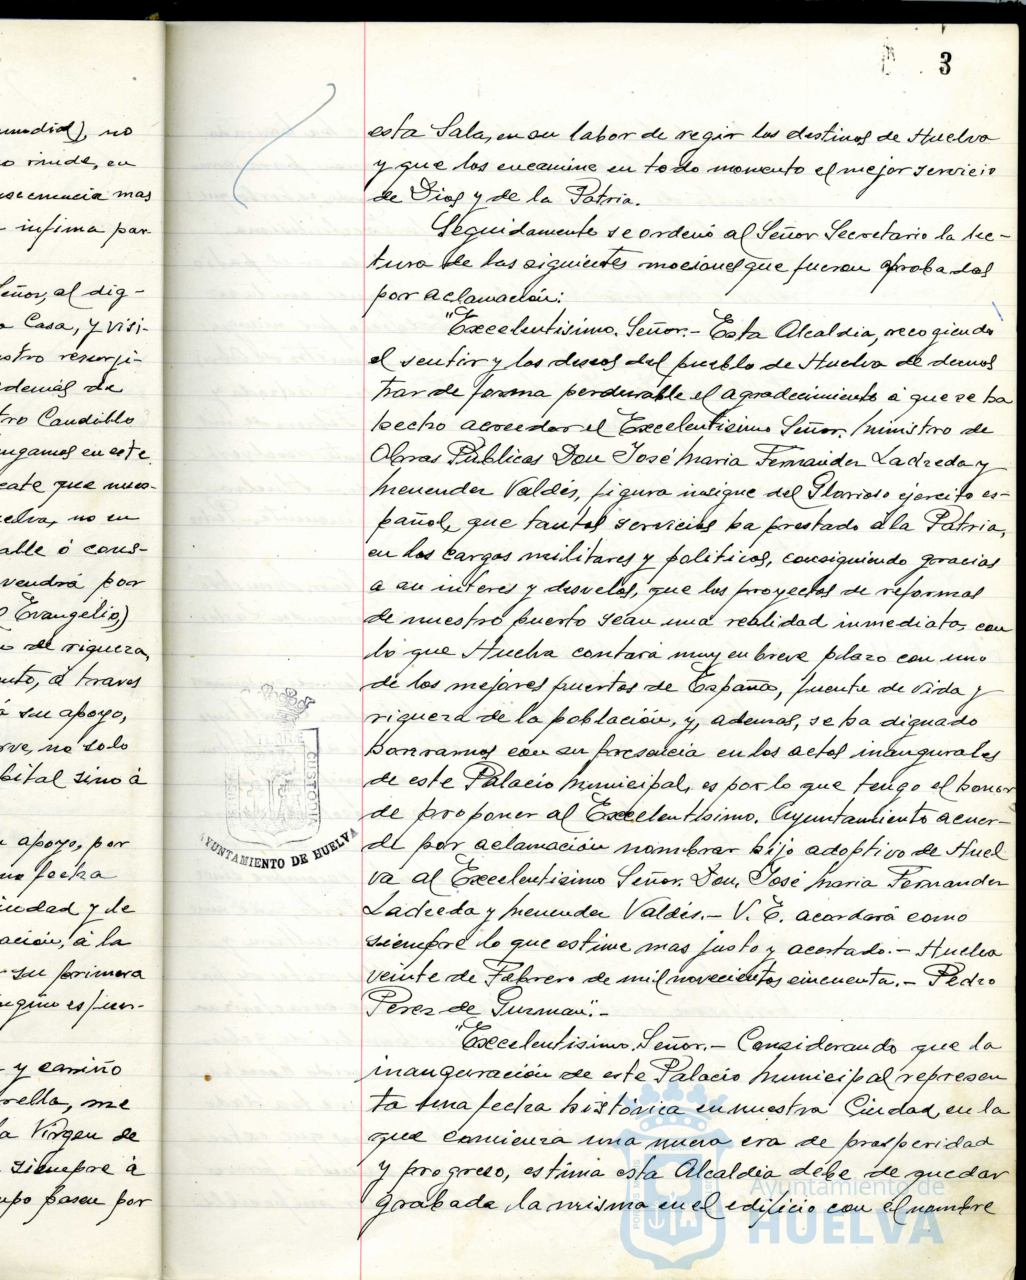 3
mundial), no
o rinde, en
secuencia mas
infima par
Señor, al dig-
a Casa, y visi-
stro resurgi-
demás de
tro Caudillo
ngamos en este
cate que nues-
uelva, no en
able ó cons-
vendrá por
Evangelio)
de riqueza,
nto, á traves
á su apoyo,
rve, no solo
pital sino á
apoyo, por
una fecha
iudad y de
ación, á la
su primera
y cariño
rella, me
la Virgen de
siempre á
mpo pasen por
esta Sala, en su labor de regir los destinos de Huelva
y que los encamine en todo momento el mejor servicio
de Dios y de la Patria.
Seguidamente se ordenó al Señor Secretario la lec-
tura de las siguientes mociones que fueron aprobadas
por aclamación:
"Excelentisimo. Señor.- Esta Alcaldia, recogiendo
el sentir y los deseos del pueblo de Huelva de demos
trar de forma perdurable el agradecimiento á que se ha
hecho acreedor el Excelentisimo Señor. Ministro de
Obras Públicas Don José Maria Fernandez Ladreda y
Menendez Valdés, figura insigne del Glorioso ejercito es-
pañol, que tantos servicios ha prestado á la Patria,
en los cargos militares y politicos, consiguiendo gracias
a su interes y desvelos, que los proyectos de reformas
de nuestro puerto sean una realidad inmediata, con
lo que Huelva contará muy en breve plazo con uno
de los mejores puertos de España, fuente de vida y
riqueza de la población, y, ademas, se ha dignado
honrarnos con su presencia en los actos inaugurales
de este Palacio Municipal, es por lo que tengo el honor
de proponer al Excelentisimo. Ayuntamiento acuer-
de por aclamación nombrar hijo adoptivo de Huel
va al Excelentisimo Señor. Don. José Maria Fernandez
Ladreda y Menendez Valdés.- V. E. acordará como
siempre lo que estime mas justo y acertado.- Huelva
veinte de Febrero de mil novecientos cincuenta.- Pedro
Perez de Guzman".-
"Excelentisimo. Señor.- Considerando que la
inauguración de este Palacio Municipal represen
ta una fecha histórica en nuestra Ciudad, en la
que comienza una nueva era de prosperidad
y progreso, estima esta Alcaldia debe de quedar
grabada la misma en el edificio con el nombre
CUSTODIA
AYUNTAMIENTO DE HUELVA
Ayuntamiento de
HUELVA